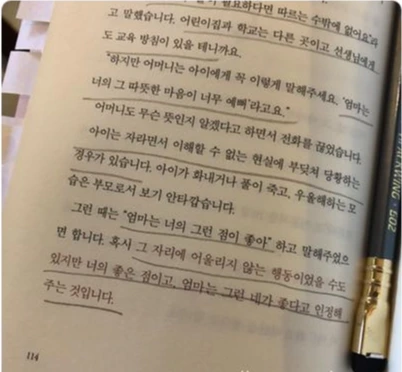 필요하다면 따르는 수밖에 없어요"라
고 말했습니다. 어린이집과 학교는 다른 곳이고 선생님에게
도 교육 방침이 있을 테니까요.
"하지만 어머니는 아이에게 꼭 이렇게 말해주세요. '엄마는
너의 그 따뜻한 마음이 너무 예뻐'라고요."
어머니도 무슨 뜻인지 알겠다고 하면서 전화를 끊었습니다.
아이는 자라면서 이해할 수 없는 현실에 부딪쳐 당황하는
경우가 있습니다. 아이가 화내거나 풀이 죽고, 우울해하는 모
습은 부모로서 보기 안타깝습니다.
그런 때는 "엄마는 너의 그런 점이 좋아" 하고 말해주었으
면 합니다. 혹시 그 자리에 어울리지 않는 행동이었을 수도
있지만 너의 좋은 점이고, 엄마는 그런 네가 좋다고 인정해
주는 것입니다.
114
BLACKWING 602